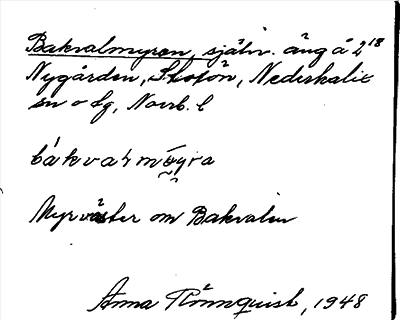 Bakvalmyren, självr. äng å 2¹⁸
Nygården, Storön, Nederkalix
sn o fg, Norrb. l
Myrväster om Bakvalen
Anna Rönnquist, 1948